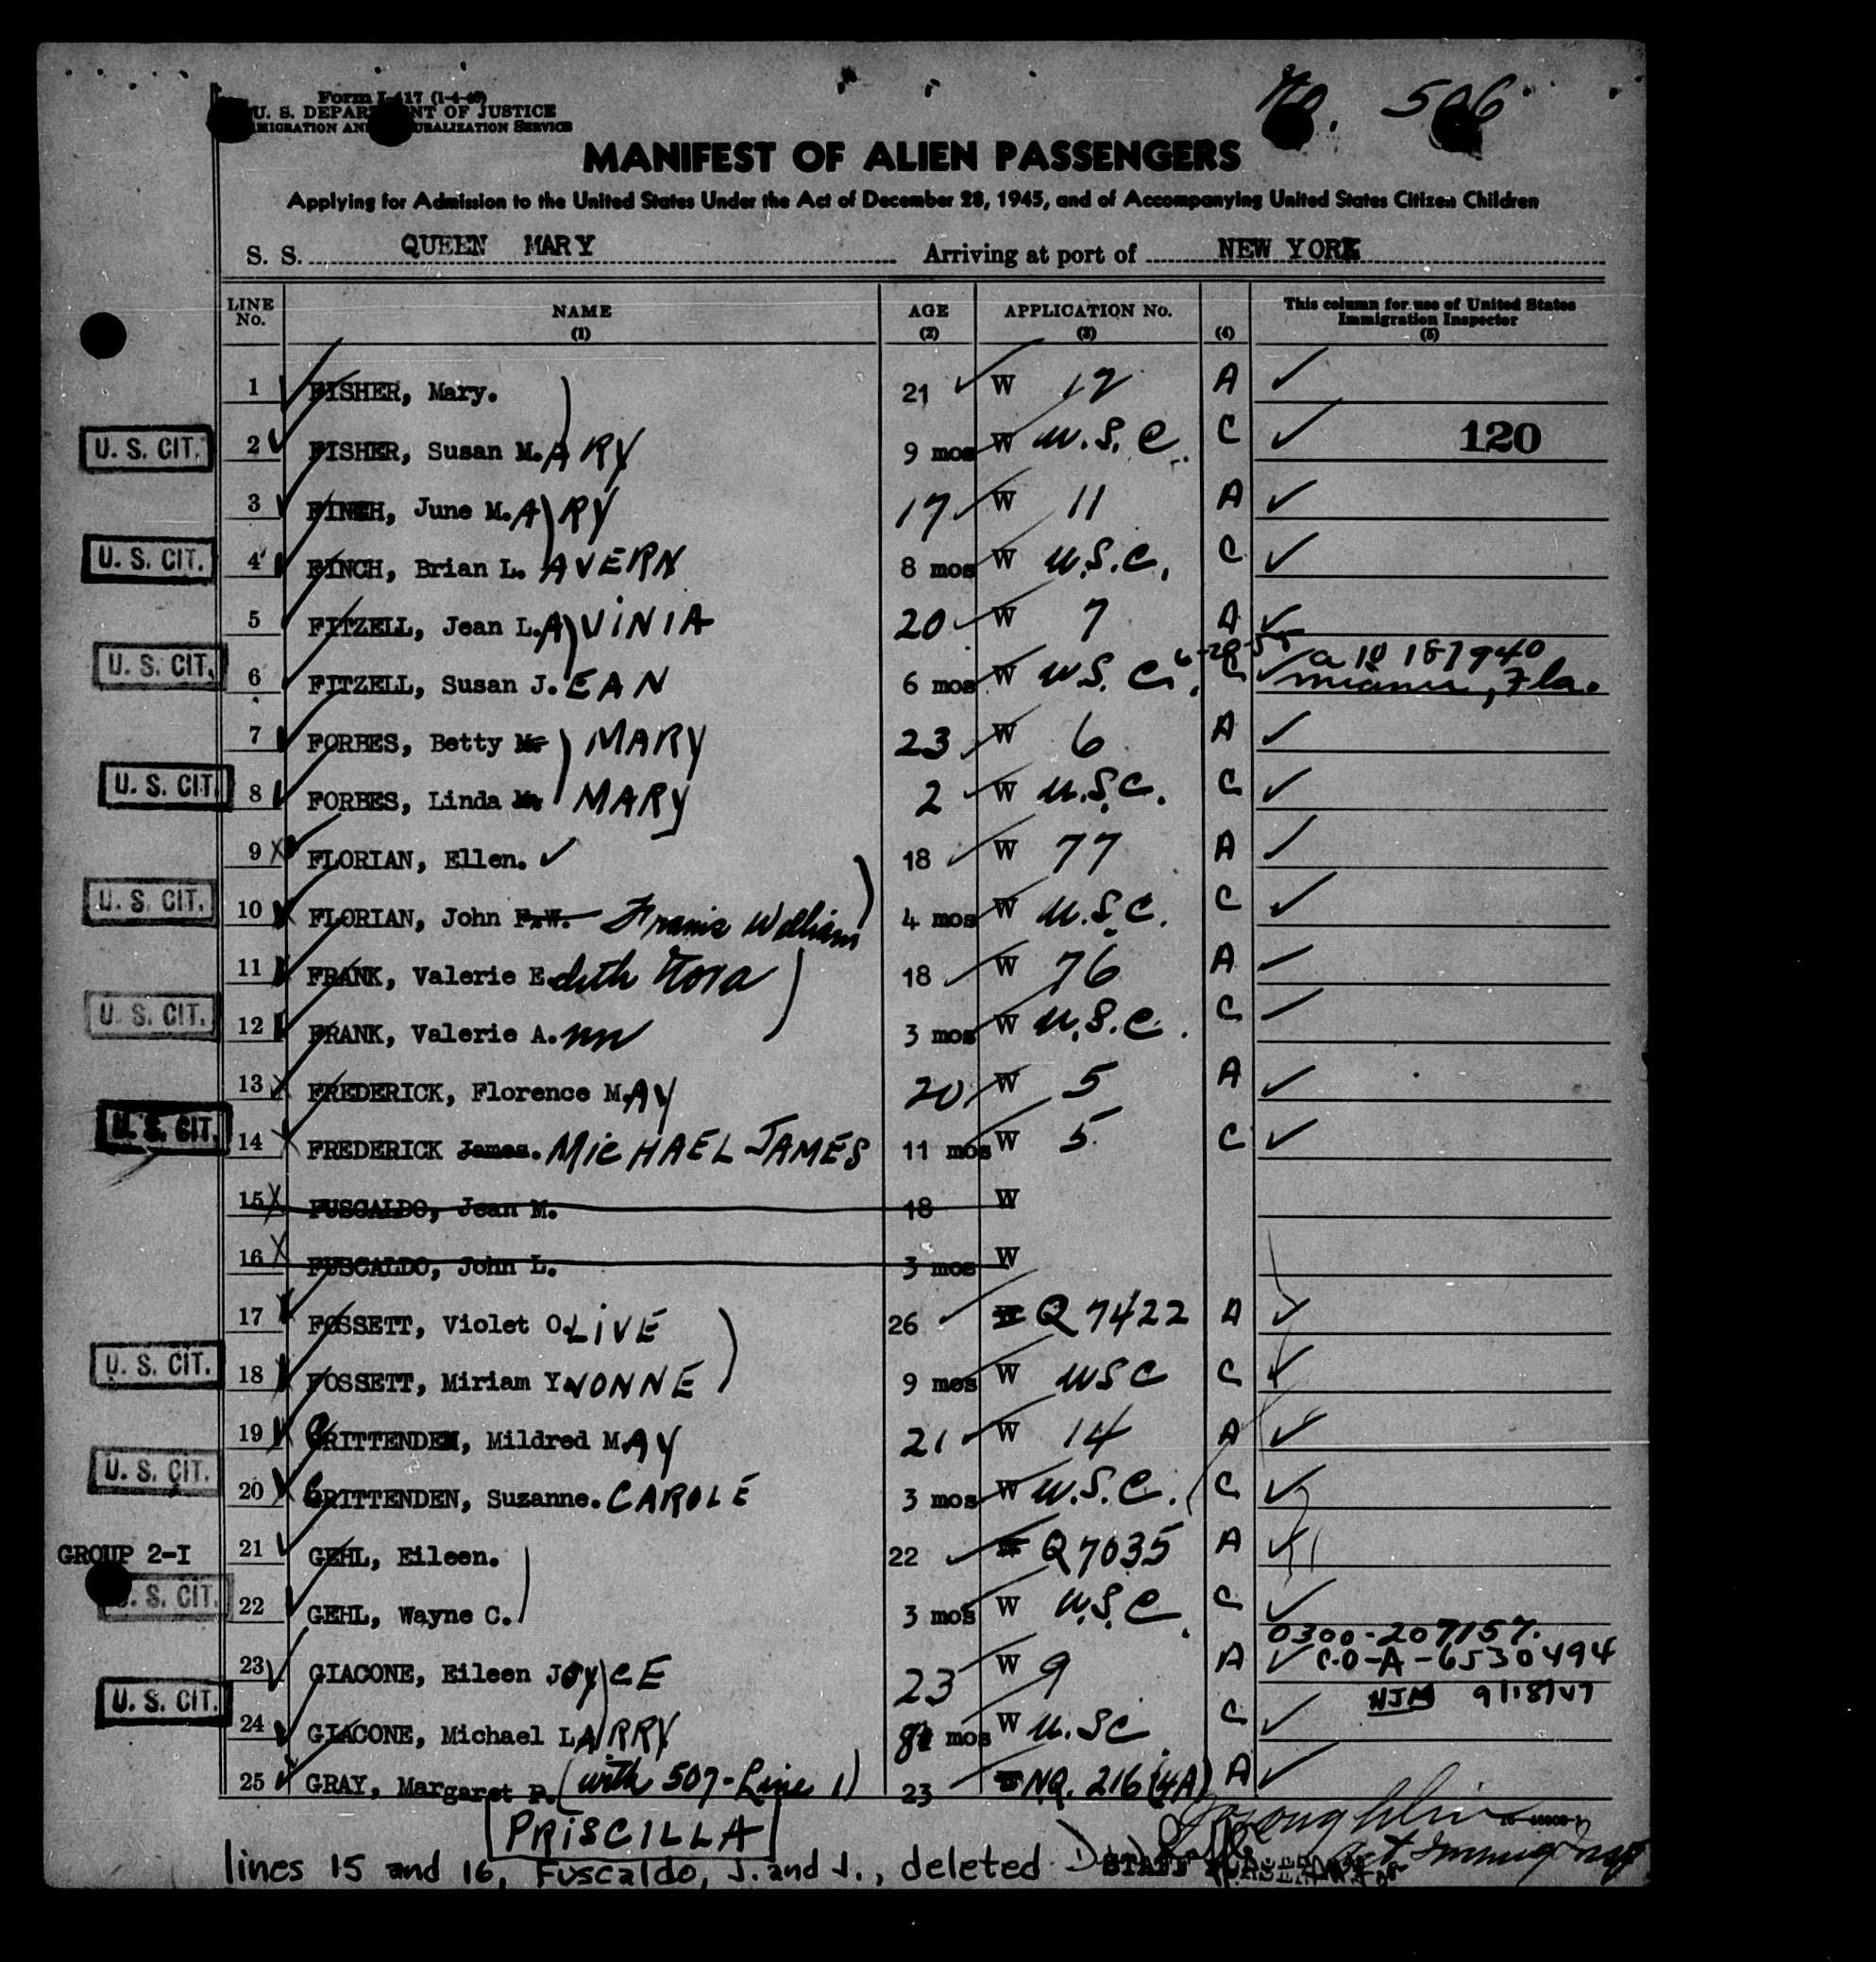 No. 506
Form I-417 (1-4-46)
U. S. DEPARTMENT OF JUSTICE
IMMIGRATION AND NATURALIZATION SERVICE
MANIFEST OF ALIEN PASSENGERS
Applying for Admission to the United States Under the Act of December 28, 1945, and of Accompanying United States Citizen Children
S. S. QUEEN MARY Arriving at port of NEW YORK
LINE No. NAME (1) AGE (2) APPLICATION No. (3) (4) This column for use of United States Immigration Inspector (5)
1 FISHER, Mary. 21 W 12 A
U. S. CIT. 2 FISHER, Susan M.ARY 9 mos W U.S.C. C 120
3 FINCH, June M.ARY 17 W 11 A
U. S. CIT. 4 FINCH, Brian L.AVERN 8 mos W U.S.C. C
5 FITZELL, Jean L.AVINIA 20 W 7 A
U. S. CIT. 6 FITZELL, Susan J.EAN 6 mos W U.S.C. 6-29-55 C a 10 187940 Miami, Fla.
7 FORBES, Betty M. MARY 23 W 6 A
U. S. CIT. 8 FORBES, Linda M. MARY 2 W U.S.C. C
9 FLORIAN, Ellen. 18 W 77 A
U. S. CIT. 10 FLORIAN, John F.W. Francis William 4 mos W U.S.C. C
11 FRANK, Valerie Edith 18 W 76 A
U. S. CIT. 12 FRANK, Valerie A.nn 3 mos W U.S.C. C
13 FREDERICK, Florence MAY 20 W 5 A
U. S. CIT. 14 FREDERICK James. MICHAEL JAMES 11 mos W 5 C
15 FUSCALDO, Jean M. 18 W
16 FUSCALDO, John L. 3 mos W
17 FOSSETT, Violet OLIVE 26 Q 7422 A
U. S. CIT. 18 FOSSETT, Miriam YVONNE 9 mos W USC C
19 CRITTENDEN, Mildred MAY 21 W 14 A
U. S. CIT. 20 CRITTENDEN, Suzanne. CAROLE 3 mos W U.S.C. C
GROUP 2-I 21 GEHL, Eileen. 22 Q 7035 A
U. S. CIT. 22 GEHL, Wayne C. 3 mos W U.S.C. C
0300-207157.
23 GIACONE, Eileen JOYCE 23 W 9 A C.O-A-6530494
U. S. CIT. 24 GIACONE, Michael LARRY 8 mos W U.SC C NJM 9/18/47
25 GRAY, Margaret P. (with 507-Line 1) 23 NQ. 216(4A) A
PRISCILLA
lines 15 and 16, Fuscaldo, J. and J., deleted